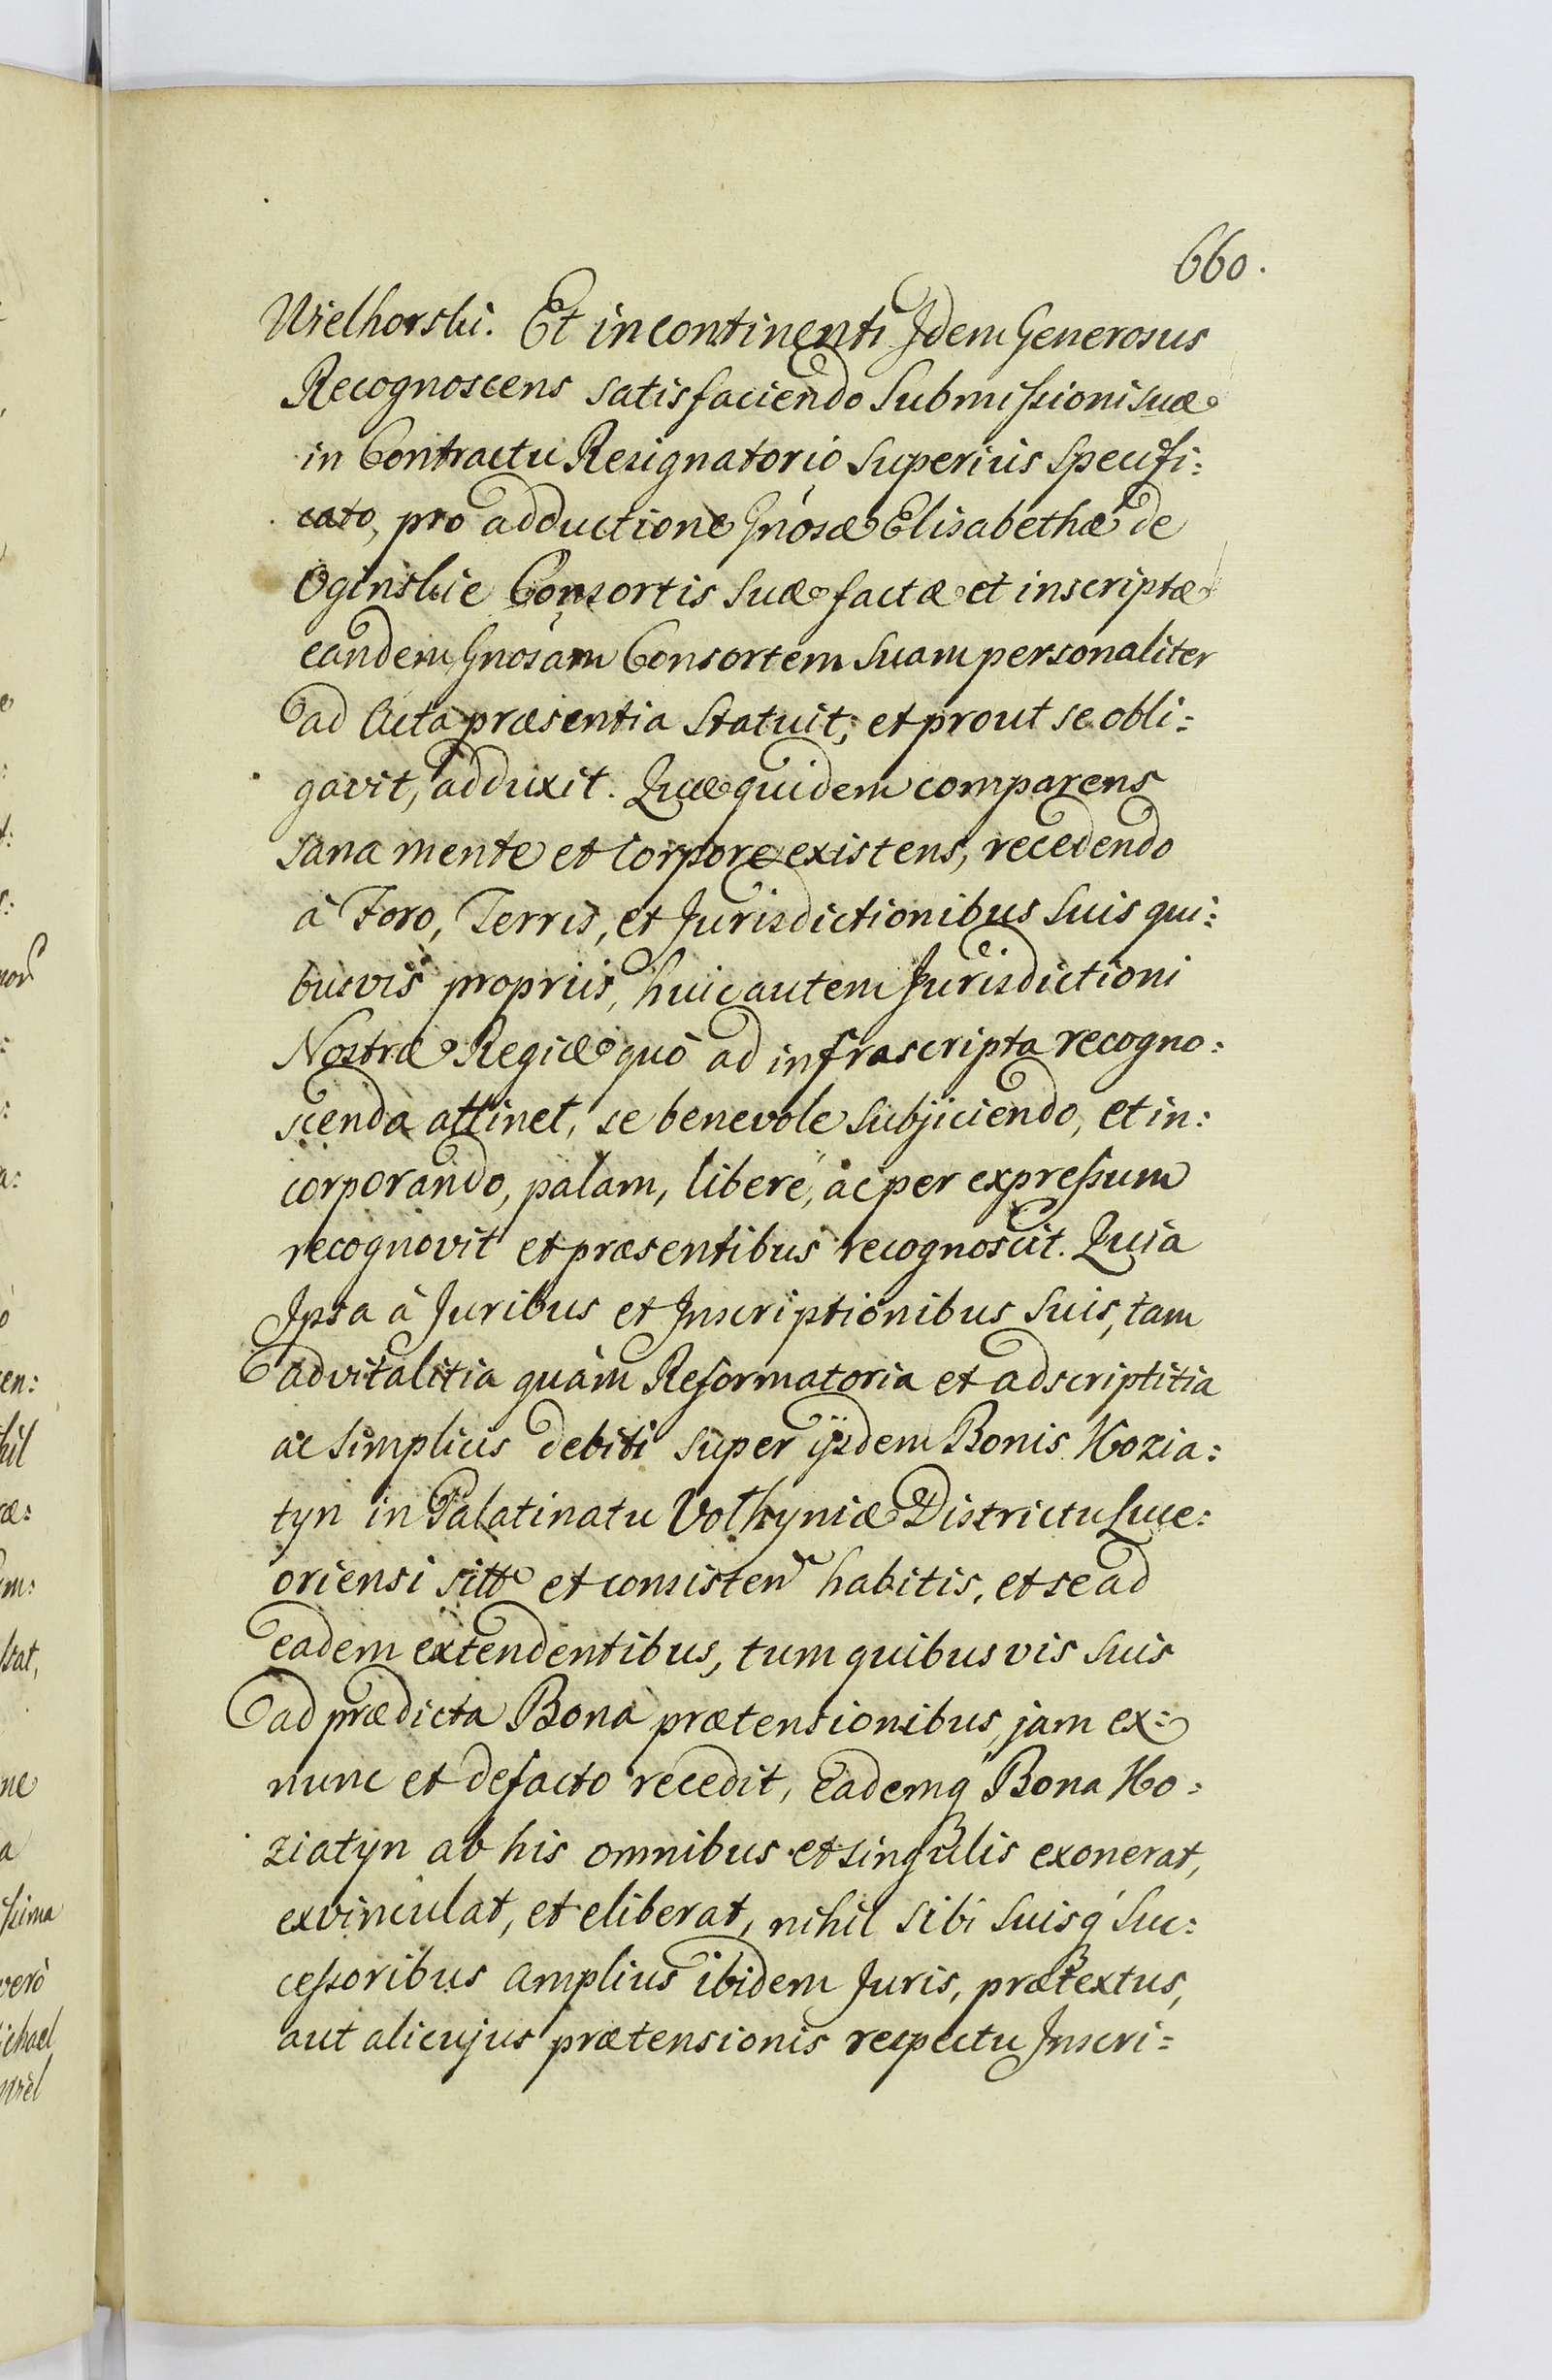 660.
Wielhorski. Et incontinenti Idem Generosus
Recognoscens satisfaciendo Submissioni suæ
in Contractu Resignatorio superius specifi:
cato, pro adductione Gnosæ Elisabethæ de
Oginskie Consortis suæ factæ et inscriptæ
eandem Gnosam Consortem suam personaliter
ad Acta præsentia statuit, et prout se obli:
gavit, adduxit. Quæ quidem comparens
sana mente et corpore existens, recedendo
à Foro, Terris, et Jurisdictionibus suis qui:
busvis propriis, huic autem Jurisdictioni
Nostræ Regiæ quò ad infrascripta recogno:
scenda attinet, se benevole subjiciendo, et in:
corporando, palam, libere, àc per expressum
recognovit et præsentibus recognoscit. Quia
Ipsa à Juribus et Inscriptionibus suis, tam
advitalitia quàm Reformatoria et adscriptitia
ac simplicis debiti super ijsdem Bonis Kozia:
tyn in Palatinatu Volhyniæ Districtu Luce:
oriensi sitt et consisten habitis, et se ad
eadem extendentibus, tum quibusvis suis
ad prædicta Bona prætensionibus, jam ex:
nunc et defacto recedit, Eademq Bona Ko:
ziatyn ab his omnibus et singulis exonerat,
exvinculat, et eliberat, nihil sibi suisq Suc:
cessoribus amplius ibidem Juris, prætextus,
aut alicujus prætensionis respectu Inscri: